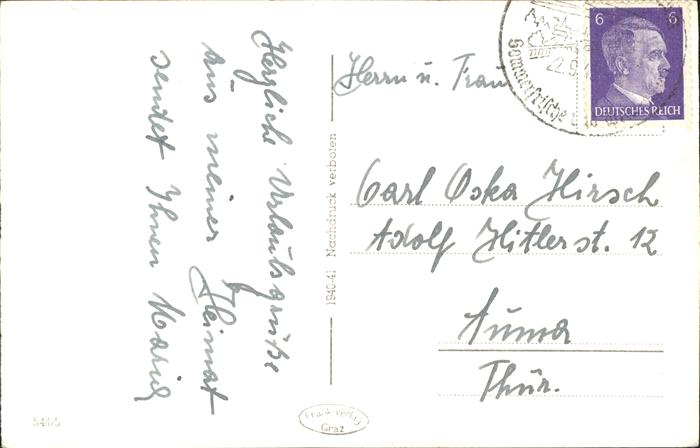 Herzliche Urlaubsgrüße
aus meiner Heimat
sendet Ihnen Marie
1940-41 Nachdruck verboten
Herrn u. Frau
Carl Oska Hirsch
Adolf Hitlerst. 12
Auma
Thür.
6 6
DEUTSCHES REICH
22.9.
Sommerfrische
Frank Verlag
Graz